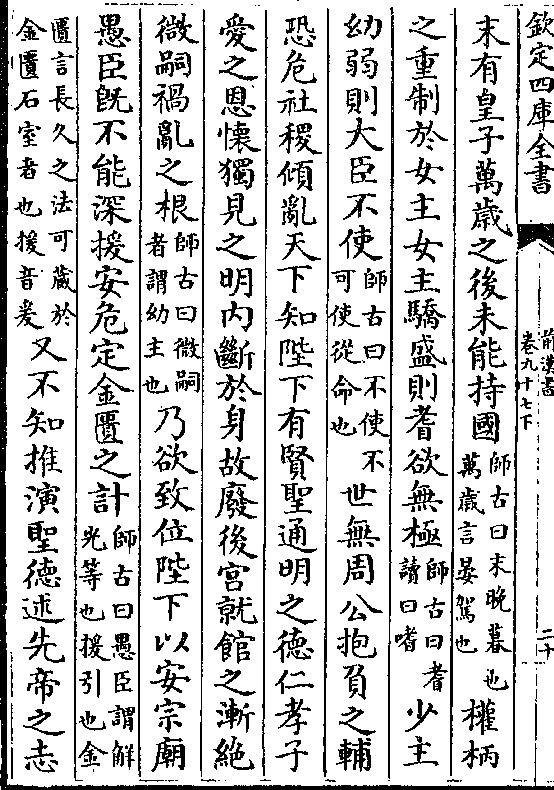 欽定四庫全書
前漢書
卷九十七下
二十
末有皇子萬歲之後未能持國師古曰末晚暮也萬歲言晏駕也權柄
之重制於女主女主驕盛則耆欲無極師古曰耆讀曰嗜少主
幼弱則大臣不使師古曰不使不可使從命也世無周公抱負之輔
恐危社稷傾亂天下知陛下有賢聖通明之德仁孝子
愛之恩懷獨見之明内斷於身故廢後宮就館之漸絶
微嗣禍亂之根師古曰微嗣者謂幼主也乃欲致位陛下以安宗廟
愚臣旣不能深援安危定金匱之計師古曰愚臣謂解光等也援引也金
匱言長久之法可藏於金匱石室者也援音爰又不知推演聖德述先帝之志